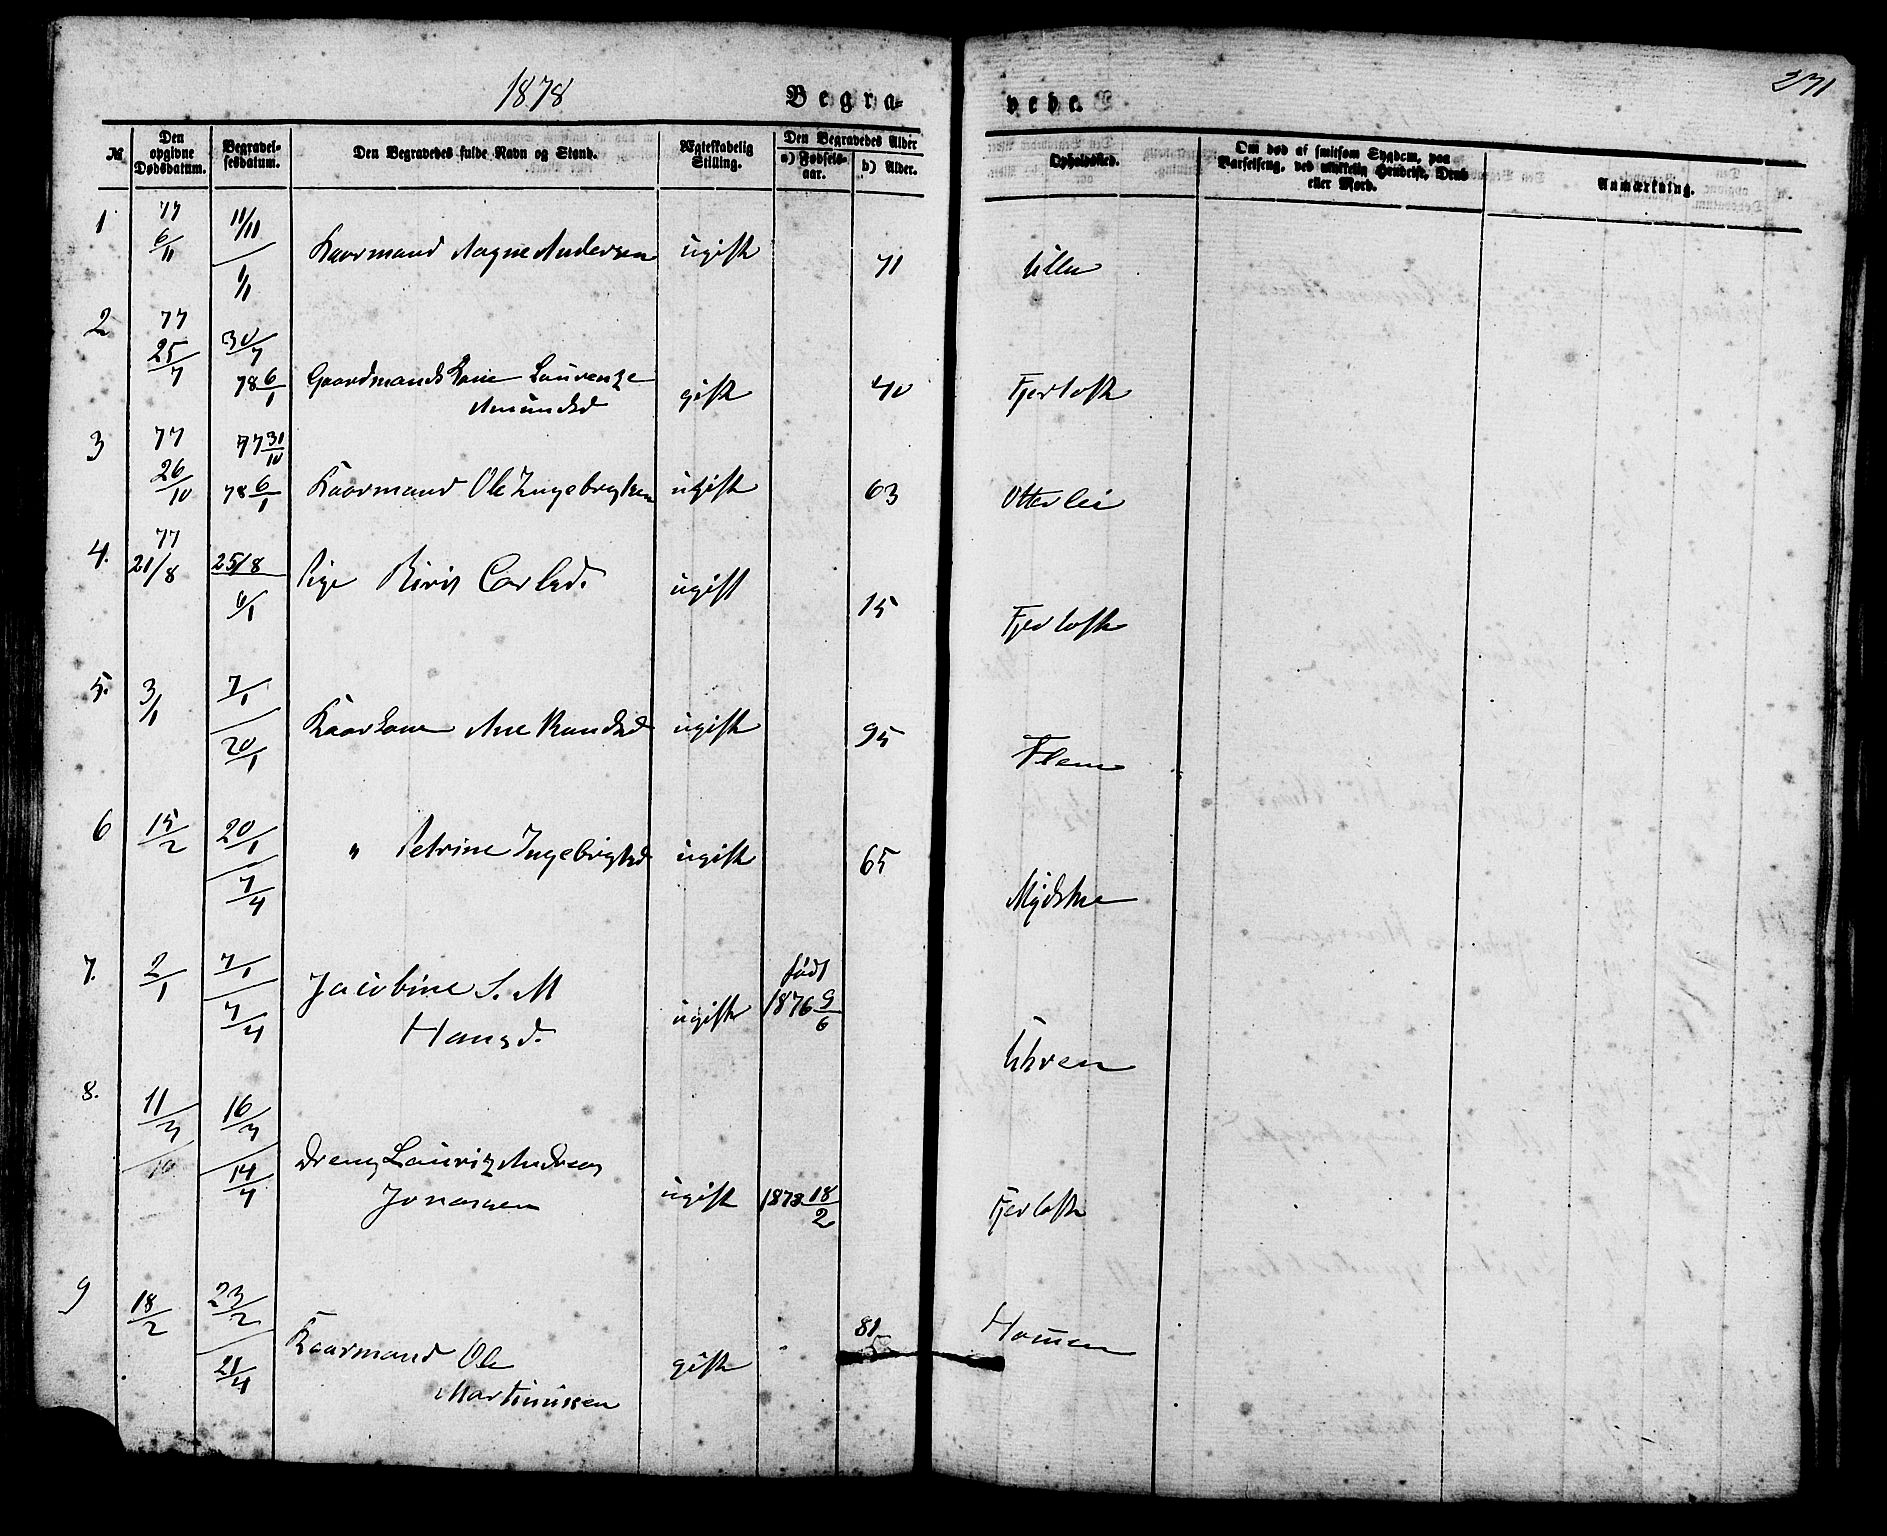 1878
Begra-
vede.
271
№
Den opgivne Dødsdatum.
Begravelsesdatum.
Den Begravedes fulde Navn og Stand.
Ægteskabelig Stilling.
Den Begravedes Alder
a) Fødselsaar.
b) Alder.
Opholdssted.
Om død af smitsom Sygdom, paa Barselseng, ved ulykkelig Hendelse, Drab eller Mord.
Anmærkning.
1 77 6/11 11/11 1/1 Kaarmand Aagne Andersen ugift 71 Ulla
2 77 25/7 30/7 78 6/1 Gaardmands Kone Laurenze
Amundsd gift 40 Fjertoft
3 77 26/10 77 31/10 78 6/1 Kaarmand Ole Ingebrigtsen ugift 63 Otterlei
4. 77 21/8 25/8 6/1 Pige Birit Carlsd. ugift 15 Fjertoft
5. 3/1 7/1 20/1 Kaarkone Ane Knudsd ugift 95 Flem
6 15/2 20/1 7/4 " Petrine Ingebrigtsd ugift 65 Mydske
7. 2/1 7/1 7/4 Jacobine S. M
Hansd. ugift født 1876 9/6 Uhren
8. 11/4 16/4 14/4 Dreng Lauriz Andreas
Jonassen ugift 1873 18/2 Fjertoft
9 18/2 23/2 21/4 Kaarmand Ole
Martinusen gift 81 Hamen